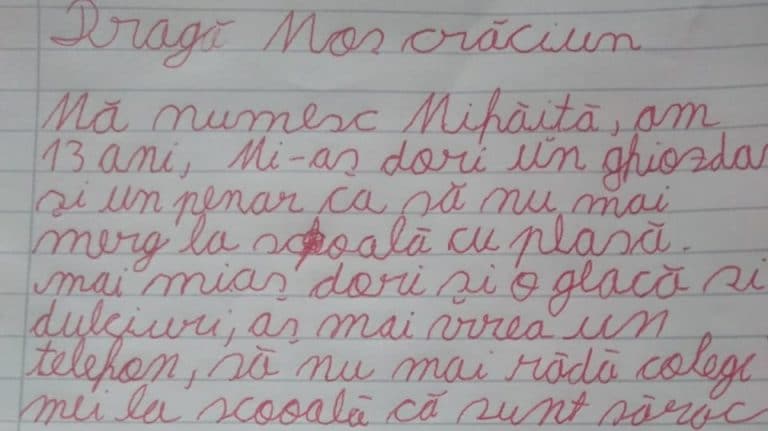 Dragă Moș crăciun
Mă numesc Mihăită, am
13 ani, Mi-aș dori un ghiozda
și un penar ca să nu mai
merg la scoală cu plasă.
mai miaș dori și o glacă și
dulciuri, aș mai vrrea un
telefon, să nu mai râdă colegi
mei la scooală că sunt sărac